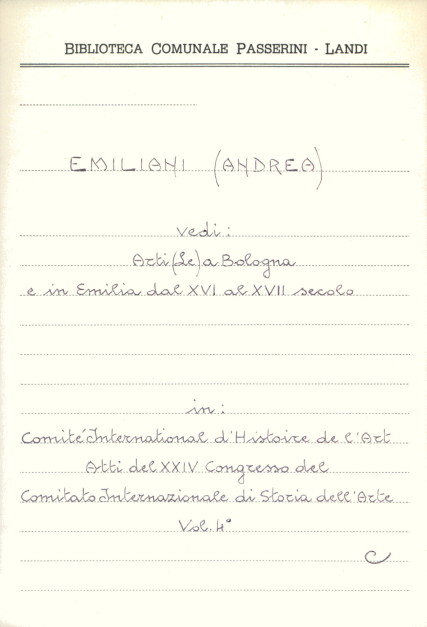 BIBLIOTECA COMUNALE PASSERINI - LANDI
EMILIANI (ANDREA)
vedi:
Arti (Le) a Bologna
e in Emilia dal XVI al XVII secolo
in:
Comité International d'Histoire de l'Art
Atti del XXIV Congresso del
Comitato Internazionale di Storia dell'Arte
Vol. 4°
C